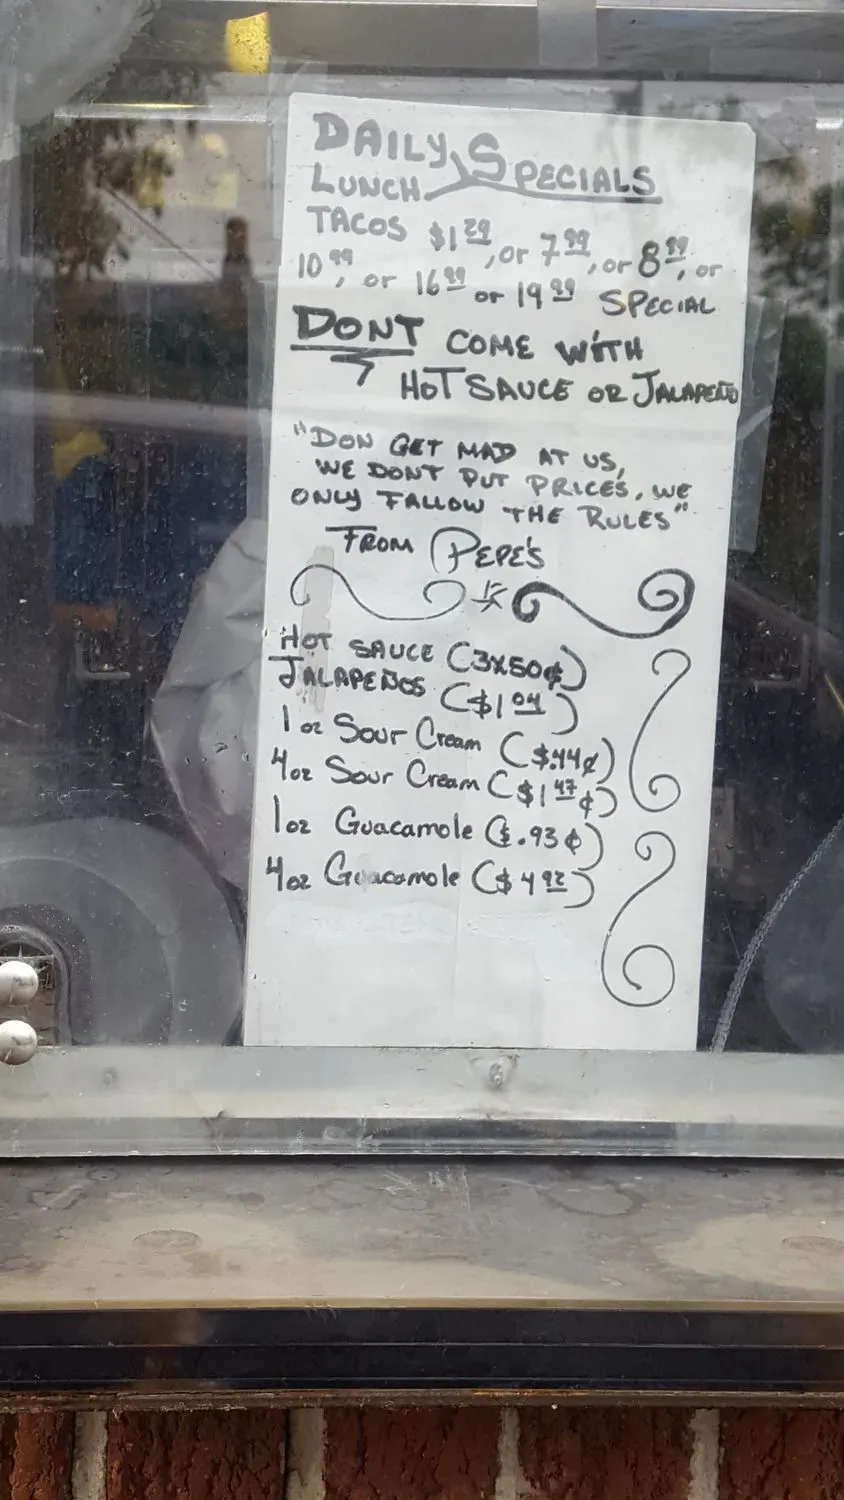 DAILY SPECIALS
LUNCH
TACOS $1 29, or 7 99, or 8 99, or
10 99, or 16 99 or 19 99 SPECIAL
DONT COME WITH
HOT SAUCE OR JALAPEÑO
"DON GET MAD AT US,
WE DONT PUT PRICES, WE
ONLY FALLOW THE RULES"
FROM PEPE'S
HOT SAUCE (3x50¢)
JALAPEÑOS ($1 04)
1 oz Sour Cream ($.44¢)
4oz Sour Cream ($1 47¢)
1oz Guacamole ($.93¢)
4oz Guacamole ($4 92)